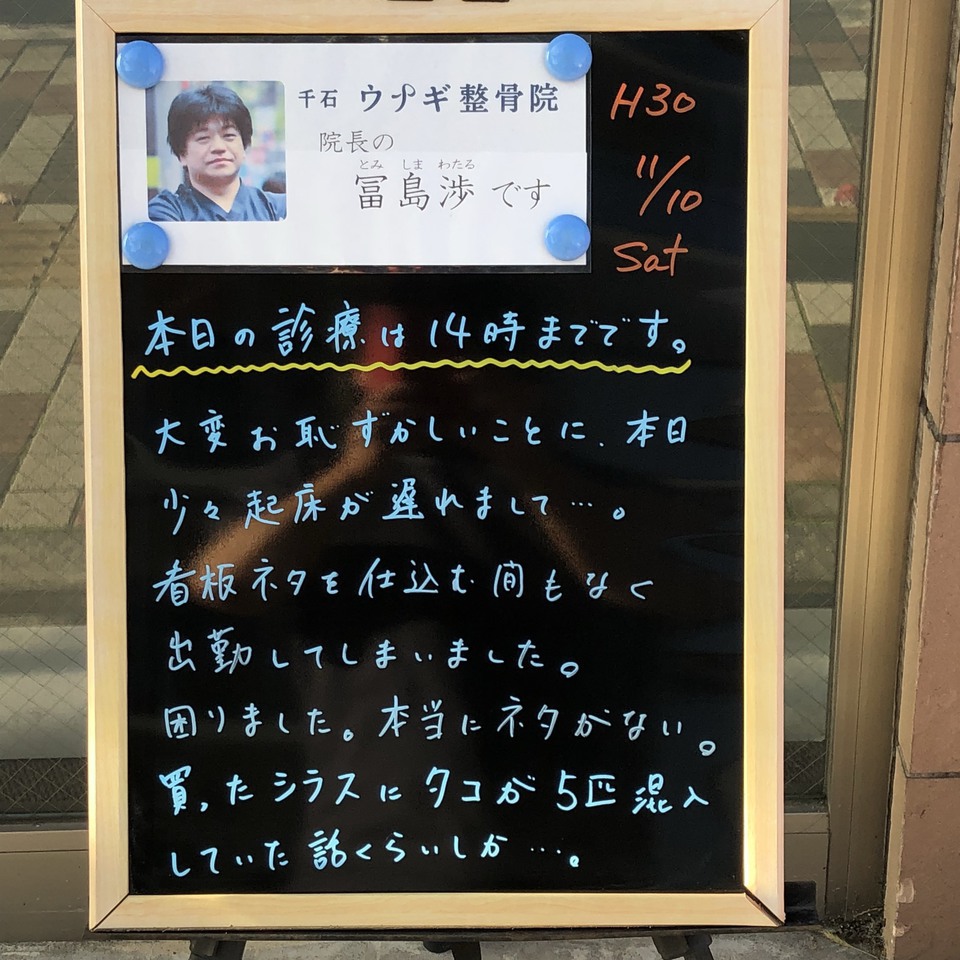 千石 ウナギ整骨院
院長の
とみ しま わたる
冨島渉です
H30
11/10
Sat
本日の診療は14時までです。
大変お恥ずかしいことに、本日
少々起床が遅れまして…。
看板ネタを仕込む間もなく
出勤してしまいました。
困りました。本当にネタがない。
買ったシラスにタコが5匹混入
していた話くらいしか…。